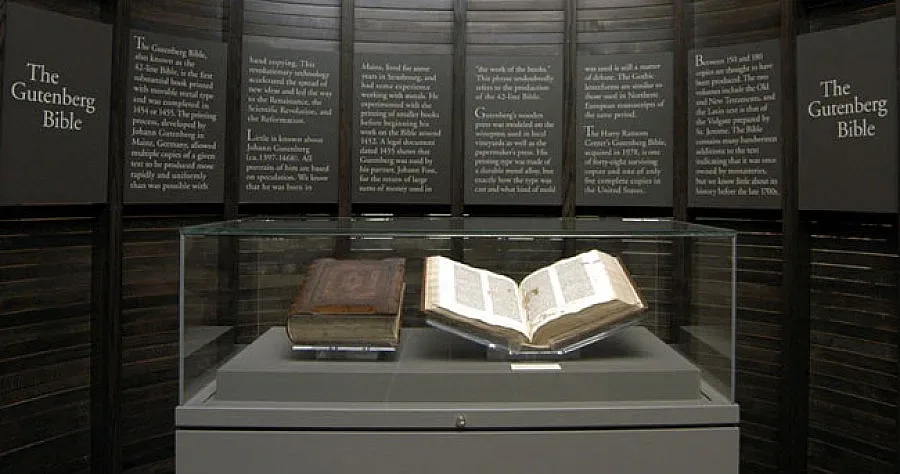 The
Gutenberg
Bible
The Gutenberg Bible,
also known as the
42-line Bible, is the first
substantial book printed
with movable metal type
and was completed in
1454 or 1455. The printing
process, developed by
Johann Gutenberg in
Mainz, Germany, allowed
multiple copies of a given
text to be produced more
rapidly and uniformly
than was possible with
hand copying. This
revolutionary technology
accelerated the spread of
new ideas and led the way
to the Renaissance, the
Scientific Revolution, and
the Reformation.
Little is known about
Johann Gutenberg
(ca.1397-1468). All
portraits of him are based
on speculation. We know
that he was born in
Mainz, lived for some
years in Strasbourg, and
had some experience
working with metals. He
experimented with the
printing of smaller books
before beginning his
work on the Bible around
1452. A legal document
dated 1455 shows that
Gutenberg was sued by
his partner, Johann Fust,
for the return of large
sums of money used in
"the work of the books."
This phrase undoubtedly
refers to the production
of the 42-line Bible.
Gutenberg's wooden
press was modeled on the
winepress used in local
vineyards as well as the
papermaker's press. His
printing type was made of
a durable metal alloy, but
exactly how the type was
cast and what kind of mold
was used is still a matter
of debate. The Gothic
letterforms are similar to
those used in Northern
European manuscripts of
the same period.
The Harry Ransom
Center's Gutenberg Bible,
acquired in 1978, is one
of forty-eight surviving
copies and one of only
five complete copies in
the United States.
Between 150 and 180
copies are thought to have
been produced. The two
volumes include the Old
and New Testaments, and
the Latin text is that of
the Vulgate prepared by
St. Jerome. The Bible
contains many handwritten
additions to the text
indicating that it was once
owned by monasteries,
but we know little about its
history before the late 1700s.
The
Gutenberg
Bible